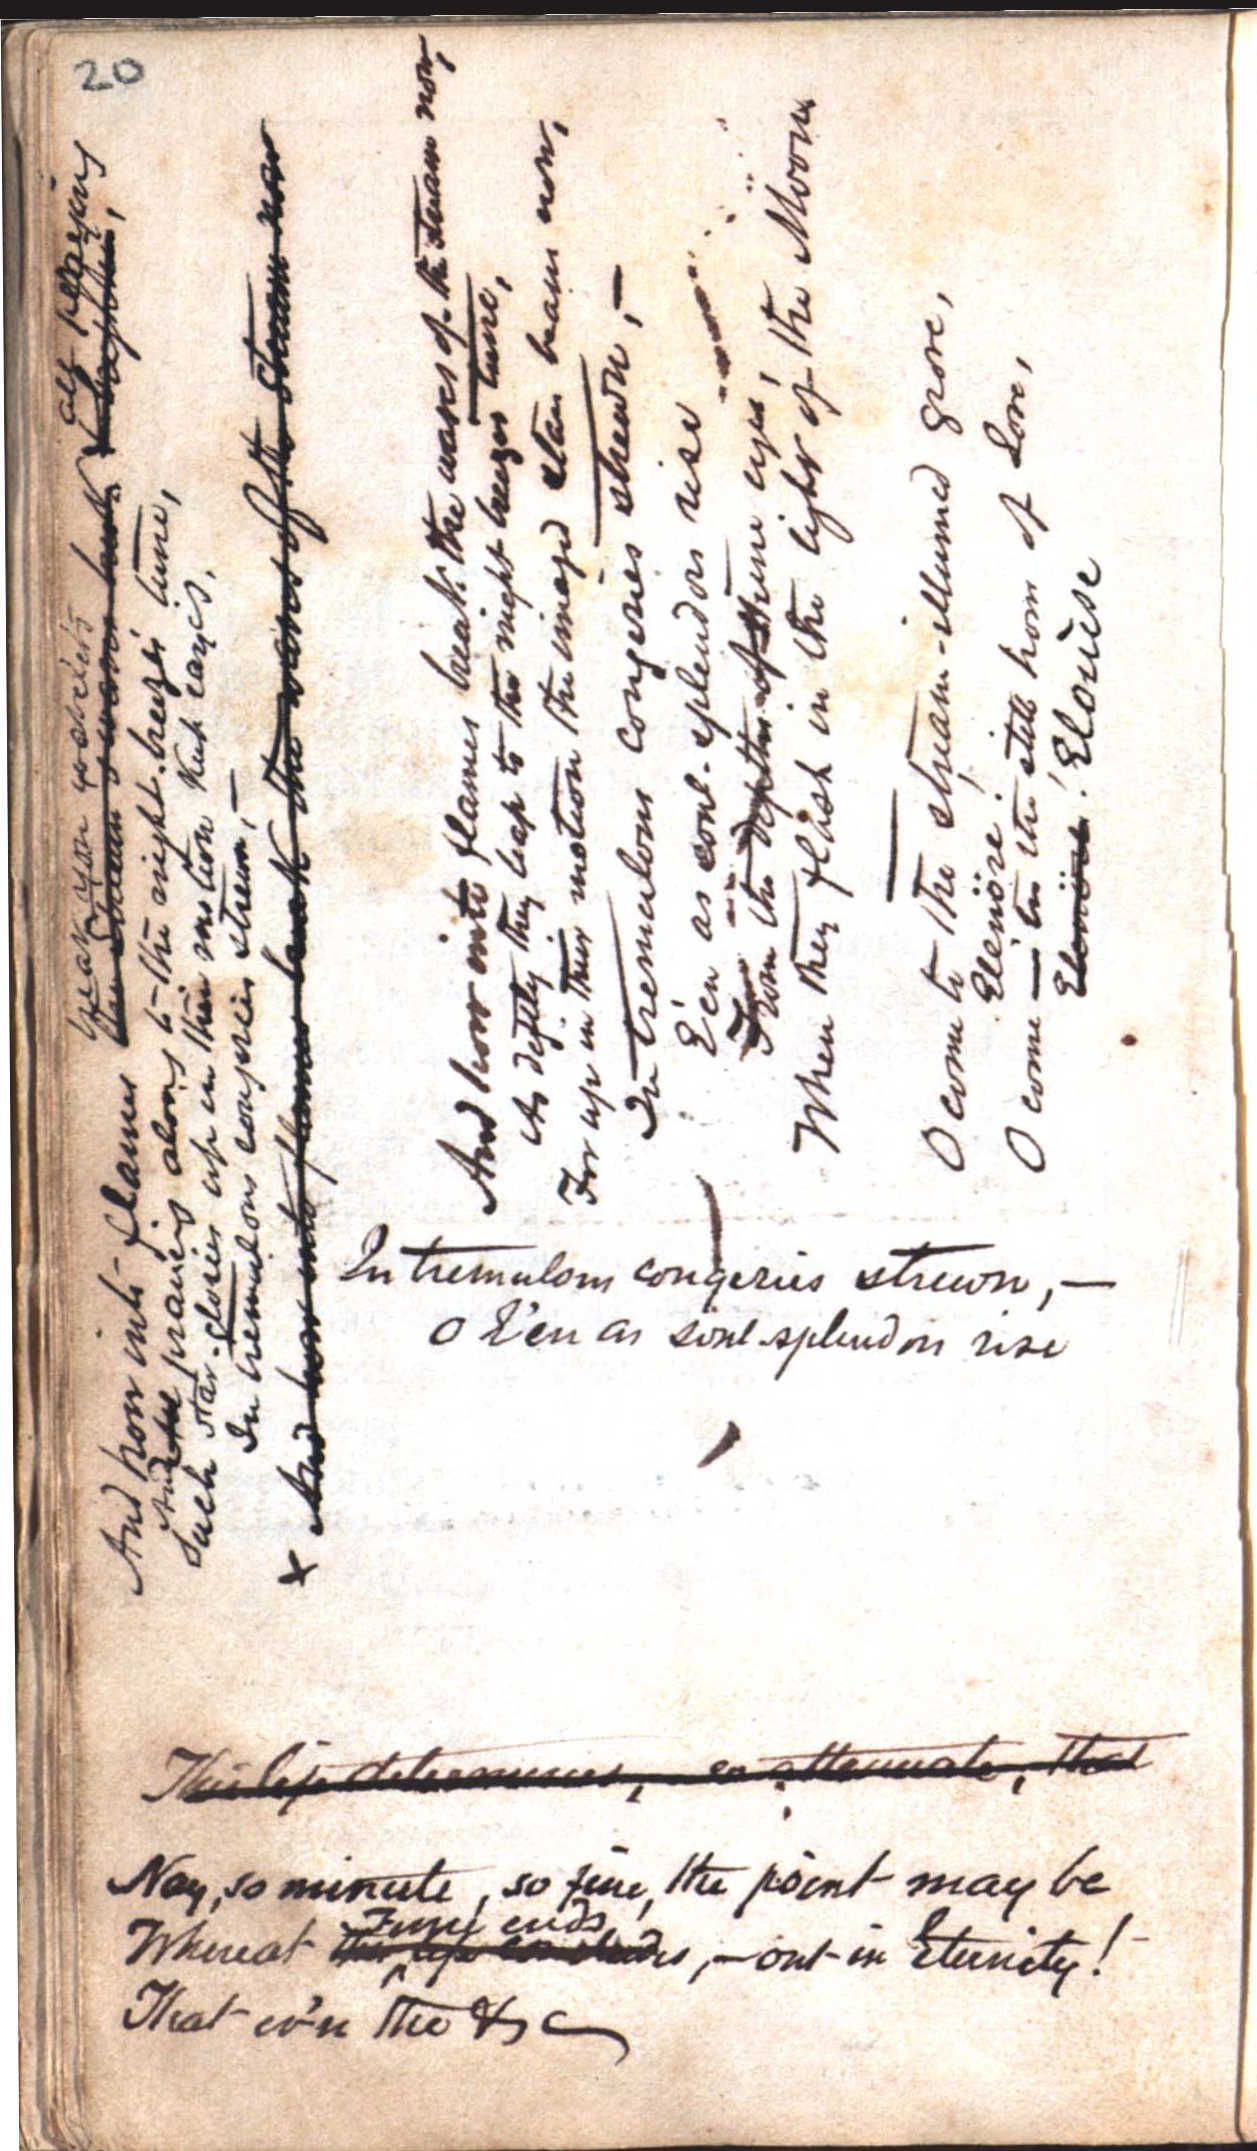 20
all playing
break yon
And how into flame
And the prancing along to the night-breezes' tune,
Such star-glories up in their motion keep
In tremulous congeries strewn,—
x And how into flames break the waves of the stream now
And how into flames break the waves of the stream now,
As deftly they leap to the night breezes tune,
For up in their motion the imaged star beams now,
In tremulous congeries strewn,—
E'en as soul-splendors rise
From the depths of thine eyes,
When they flash in the light of the Moon
O come to the stream-illumed grove,
Elenöre!
O come — in the still hour of Love,
Elenöre! Eloïse
In tremulous congeries strewn,—
O E'en as soul splendors rise
This life determines, so attenuate, that
Nay, so minute, so fine, the point may be
Time ends
Whereat this life concludes,—out in Eternity!
That ev'n the &c